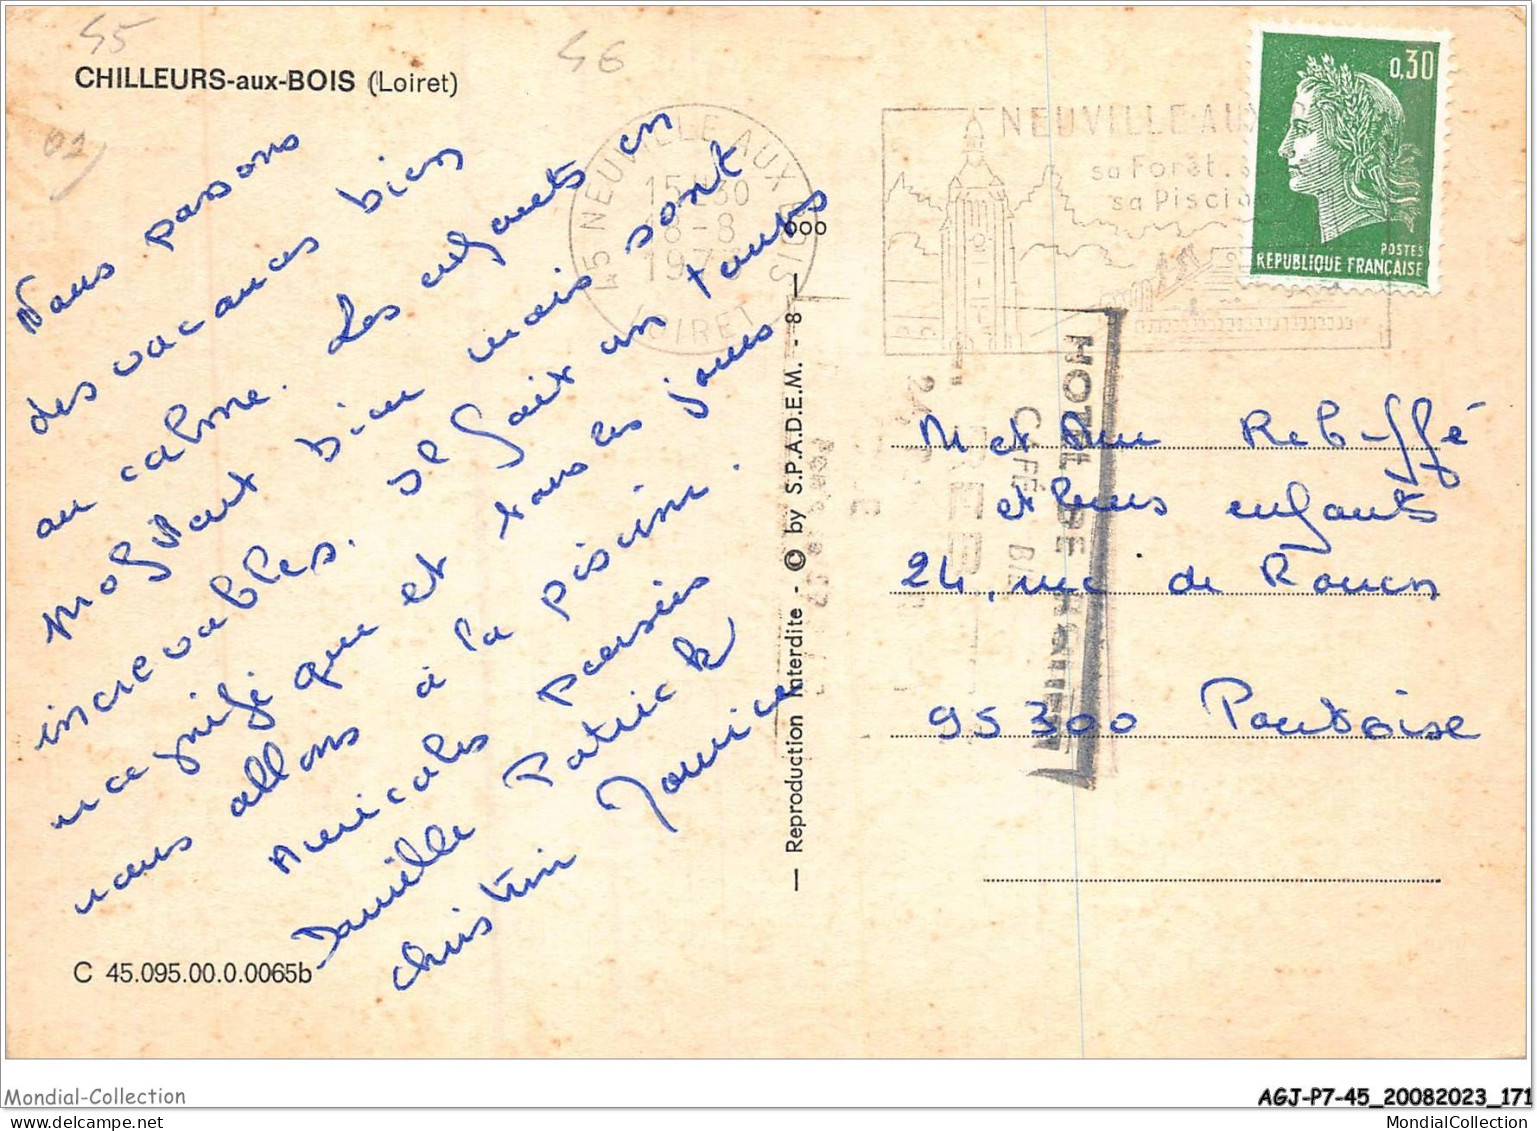 45
46
CHILLEURS-aux-BOIS (Loiret)
02
Nous passons
des vacances bien
au calme. Les enfants en
profitant bien mais sont
increvables. Il fait un temps
magnifique et tous les jours
nous allons à la piscine.
Amicales pensées
Danielle Patrick
Christine Monique
C 45.095.00.0.0065b
45 NEUVILLE AUX BOIS
15H30
18-8
197
LOIRET
000
— Reproduction Interdite - © by S.P.A.D.E.M. - 8 —
NEUVILLE-AUX
sa Forêt. s
sa Piscine
0,30
POSTES
REPUBLIQUE FRANÇAISE
HOTEL DE
CAFÉ
M et Mme Rebuffé
et leurs enfants
24, rue de Rouen
95300 Pontoise
Mondial-Collection
AGJ-P7-45_20082023_171
MondialCollection